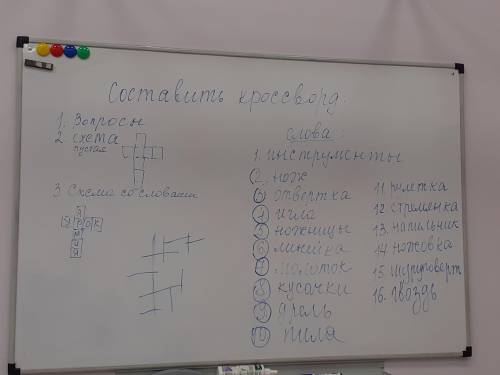 Составить кроссворд:
1. Вопросы
2. схема
пустая
3. Схема со словами
слова:
1. инструменты
2. нож
3 отвертка
4 игла
5 ножницы
6 линейка
7 молоток
8 кусачки
9 дрель
10 пила
11. рулетка
12. стремянка
13. напильник
14 ножовка
15. шуруповерт
16. гвоздь